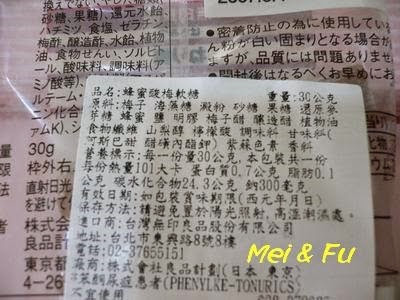 換えでない)、植物
砂糖、果糖)、還元水飴
ハチミツ、食塩、ゼラチン、
梅酢、醸造酢、水飴、植物
食物せんい、ソルビトール、
酸味料、調味料(アミ
ノ酸等)、甘味料
30g
枠外右
直射日光
を避けて
株式会社
良品計
東京都
4-26
●密着防止の為に使用してい
ん粉が白い固まりとなる場合が
ますが、品質には問題ありま
●開封後はなるべくお早めにお
品名:蜂蜜酸梅軟糖 重量:30公克
原料:梅子 海藻糖 澱粉 砂糖 果糖 還原麥
芽糖 蜂蜜 鹽 明膠 梅子醋 釀造醋 植物油
食物纖維 山梨醇 檸檬酸 調味料 甘味料(
阿斯巴甜 醋磺內酯鉀) 紫蘇色素 香料
營養標示:每一份量30公克,本包裝共一份
每份熱量101大卡 蛋白質0.7公克 脂肪0.1
公克 碳水化合物24.3公克 鈉300毫克
有效日期:如包裝賞味期限(西元年月日)
保存方法:請避免置於陽光照射,高溫潮濕處。
進口商:台灣無印良品股份有限公司
地址:台北市東興路8號8樓
電話:02-37655151
廠商:株式會社良品計劃(日本 東京)
苯酮尿症患者(PHENYLKE-TONURICS)
不宜使用
Mei & Fu